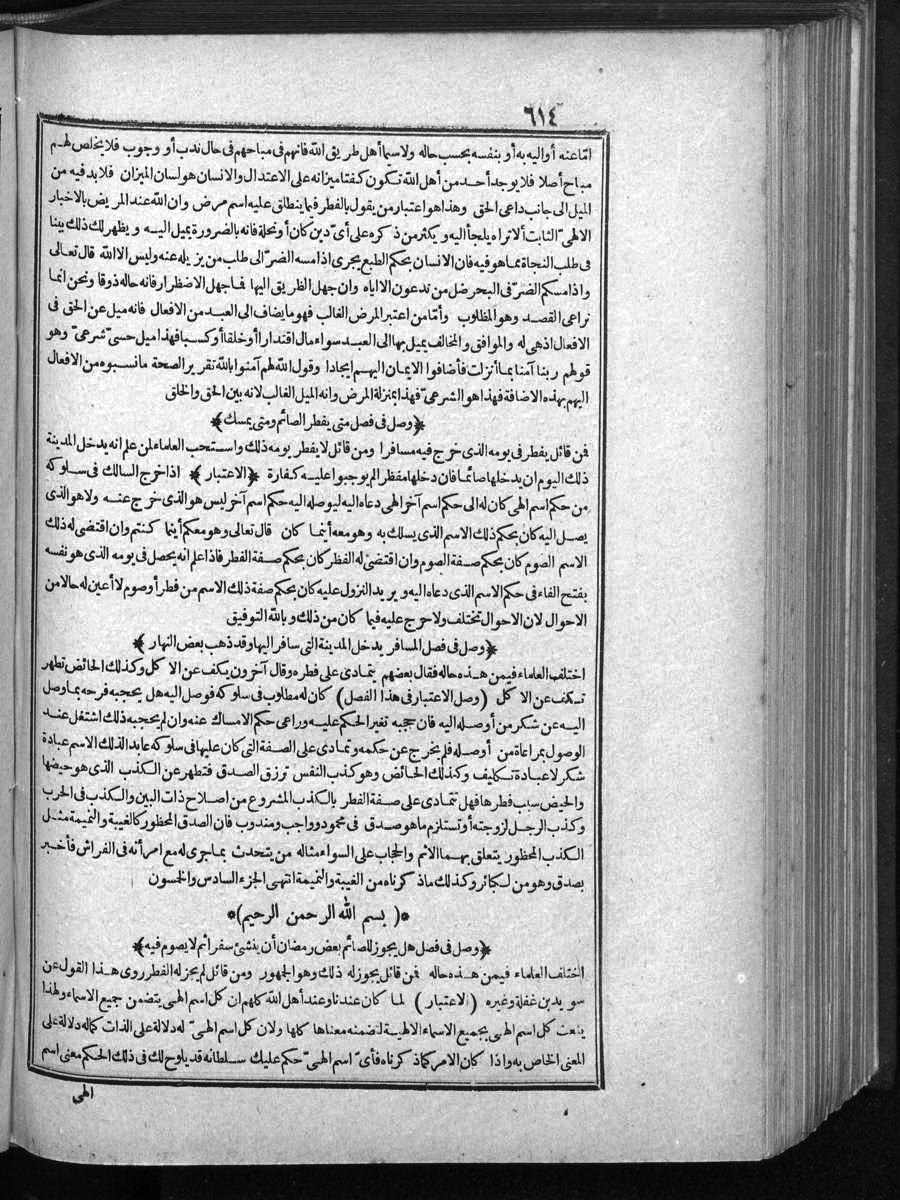 ٦١٤
امّا عنه أو اليه به أو بنفسه بحسب حاله ولا سيما أهل طريق الله فانهم فى مباحهم فى حال ندب أو وجوب فلا يخلص لهم
مباح أصلا فلا يوجد أحد من أهل الله تكون كفتا ميزانه على الاعتدال والانسان هو لسان الميزان فلا بد فيه من
الميل الى جانب داعى الحق وهذا هو اعتبار من يقول بالفطر فيما ينطلق عليه اسم مرض وان الله عند المريض بالاخبار
الالهىّ الثابت ألا تراه يلجأ اليه ويكثر من ذكره على أىّ دين كان أو نحلة فانه بالضرورة يميل اليه ويظهر لك ذلك بينا
فى طلب النجاة مما هو فيه فان الانسان بحكم الطبع يجرى اذا مسه الضرّ الى طلب من يزيله عنه وليس الا الله قال تعالى
واذا مسكم الضرّ فى البحر ضل من تدعون الا اياه وان جهل الطريق اليها فما جهل الاضطرار فانه حاله ذوقا ونحن انما
نراعى القصد وهو المطلوب وأمّا من اعتبر المرض الغالب فهو ما يضاف الى العبد من الافعال فانه ميل عن الحق فى
الافعال اذ هى له والموافق والمخالف يميل بها الى العبد سواء مال اقتدارا أو خلقا أو كسبا فهذا ميل حسىّ شرعىّ وهو
قولهم ربنا آمنا بما أنزلت فأضافوا الايمان اليهم ايجادا وقول الله لهم آمنوا بالله تقرير الصحة ما نسبوه من الافعال
اليهم بهذه الاضافة فهذا هو الشرعىّ فهذا بمنزلة المرض وانه الميل الغالب لانه بين الحق والخلق
﴿وصل فى فصل متى يفطر الصائم ومتى يمسك﴾
فمن قائل يفطر فى يومه الذى خرج فيه مسافرا ومن قائل لا يفطر يومه ذلك واستحب العلماء لمن علم انه يدخل المدينة
ذلك اليوم ان يدخلها صائما فان دخلها مفطرا لم يوجبوا عليه كفارة ﴿الاعتبار﴾ اذا خرج السالك فى سلوكه
من حكم اسم الهى كان له الى حكم اسم آخر الهى دعاه اليه ليوصله اليه حكم اسم آخر ليس هو الذى خرج عنه ولا هو الذى
يصل اليه كان بحكم ذلك الاسم الذى يسلك به وهو معه أينما كان قال تعالى وهو معكم أينما كنتم وان اقتضى له ذلك
الاسم الصوم كان بحكم صفة الصوم وان اقتضى له الفطر كان بحكم صفة الفطر فاذا علم انه يحصل فى يومه الذى هو نفسه
بفتح الفاء فى حكم الاسم الذى دعاه اليه ويريد النزول عليه كان بحكم صفة ذلك الاسم من فطر أو صوم لا أعين له حالا من
الاحوال لان الاحوال تختلف ولا حرج عليه فيما كان من ذلك وبالله التوفيق
﴿وصل فى فصل المسافر يدخل المدينة التى سافر اليها وقد ذهب بعض النهار﴾
اختلف العلماء فيمن هذه حاله فقال بعضهم يتمادى على فطره وقال آخرون يكف عن الاكل وكذلك الحائض تطهر
تكف عن الاكل (وصل الاعتبار فى هذا الفصل) كان له مطلوب فى سلوكه فوصل اليه هل يحجبه فرحه بما وصل
اليه عن شكر من أوصله اليه فان حجبه تغير الحكم عليه وراعى حكم الامساك عنه وان لم يحجبه ذلك اشتغل عند
الوصول بمراعاة من أوصله فلم يخرج عن حكمه وتمادى على الصفة التى كان عليها فى سلوكه عابدا لذلك الاسم عبادة
شكر لا عبادة تكليف وكذلك الحائض وهو كذب النفس ترزق الصدق فتطهر عن الكذب الذى هو حيضها
والحيض سبب فطرها فهل تتمادى على صفة الفطر بالكذب المشروع من اصلاح ذات البين والكذب فى الحرب
وكذب الرجل لزوجته أو تستلزم ما هو صدق فى محمود وواجب ومندوب فان الصدق المحظور كالغيبة والنميمة مثل
الكذب المحظور يتعلق بهما الاثم والحجاب على السواء مثاله من يتحدث بما جرى له مع امرأته فى الفراش فأخبر
بصدق وهو من الكبائر وكذلك ما ذكرناه من الغيبة والنميمة انتهى الجزء السادس والخمسون
*(بسم الله الرحمن الرحيم)*
﴿وصل فى فصل هل يجوز للصائم بعض رمضان أن ينشئ سفرا ثم لا يصوم فيه﴾
اختلف العلماء فيمن هذه حاله فمن قائل يجوز له ذلك وهو الجمهور ومن قائل لم يجز له الفطر روى هذا القول عن
سويد بن غفلة وغيره (الاعتبار) لما كان عندنا وعند أهل الله كلهم ان كل اسم الهى يتضمن جميع الاسماء ولهذا
ينعت كل اسم الهى بجميع الاسماء الالهية لتضمنه معناها كلها ولان كل اسم الهىّ له دلالة على الذات كما له دلالة على
المعنى الخاص به واذا كان الامر كما ذكرناه فأىّ اسم الهىّ حكم عليك سلطانه قد يلوح لك فى ذلك الحكم معنى اسم
الهى